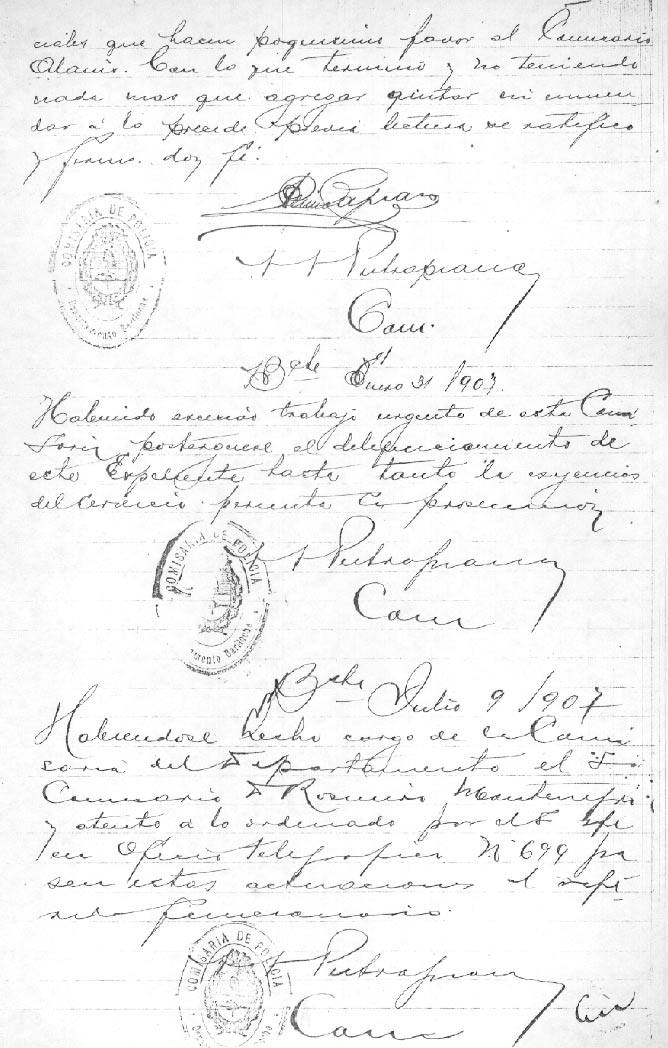 ciales que hacen poquisimo favor al Comisario
Alanis. Con lo que termino y no teniendo
nada mas que agregar quitar ni enmen-
dar á lo precede previa lectura se ratifico
y firma doy fé.
COMISARIA DE POLICIA
Departamento Bariloche
Pietrapiana
Com.
Bche Enero 31/1907.
Habiendo trabajo urgente de esta Comi
saria postergase el diligenciamiento de
este Expediente hasta tanto las exigencias
del servicio permita su prosecución
COMISARIA DE POLICIA
mento Bariloche
Pietrapiana
Com
Bche Julio 9/1907
Habiendose hecho cargo de la Comi
saria del Departamento el Sr
Comisario D Rosmiro Montenegro
y atento a lo ordenado por el Sr Gefe
en Oficio telegrafico Nº 699 pa
sen estas actuaciones al refe
rido funcionario.
COMISARIA DE POLICIA
Pietrapiana
Com